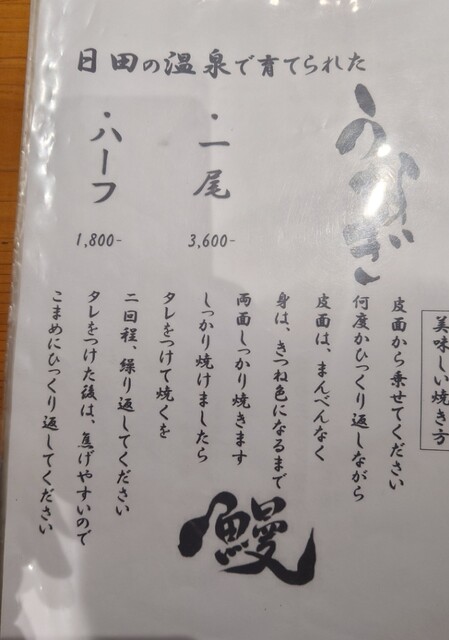 日田の温泉で育てられた
うなぎ
・一尾
3,600-
・ハーフ
1,800-
美味しい焼き方
皮面から乗せてください
何度かひっくり返しながら
皮面は、まんべんなく
身は、きつね色になるまで
両面しっかり焼きます
しっかり焼けましたら
タレをつけて焼くを
二回程、繰り返してください
タレをつけた後は、焦げやすいので
こまめにひっくり返してください
鰻